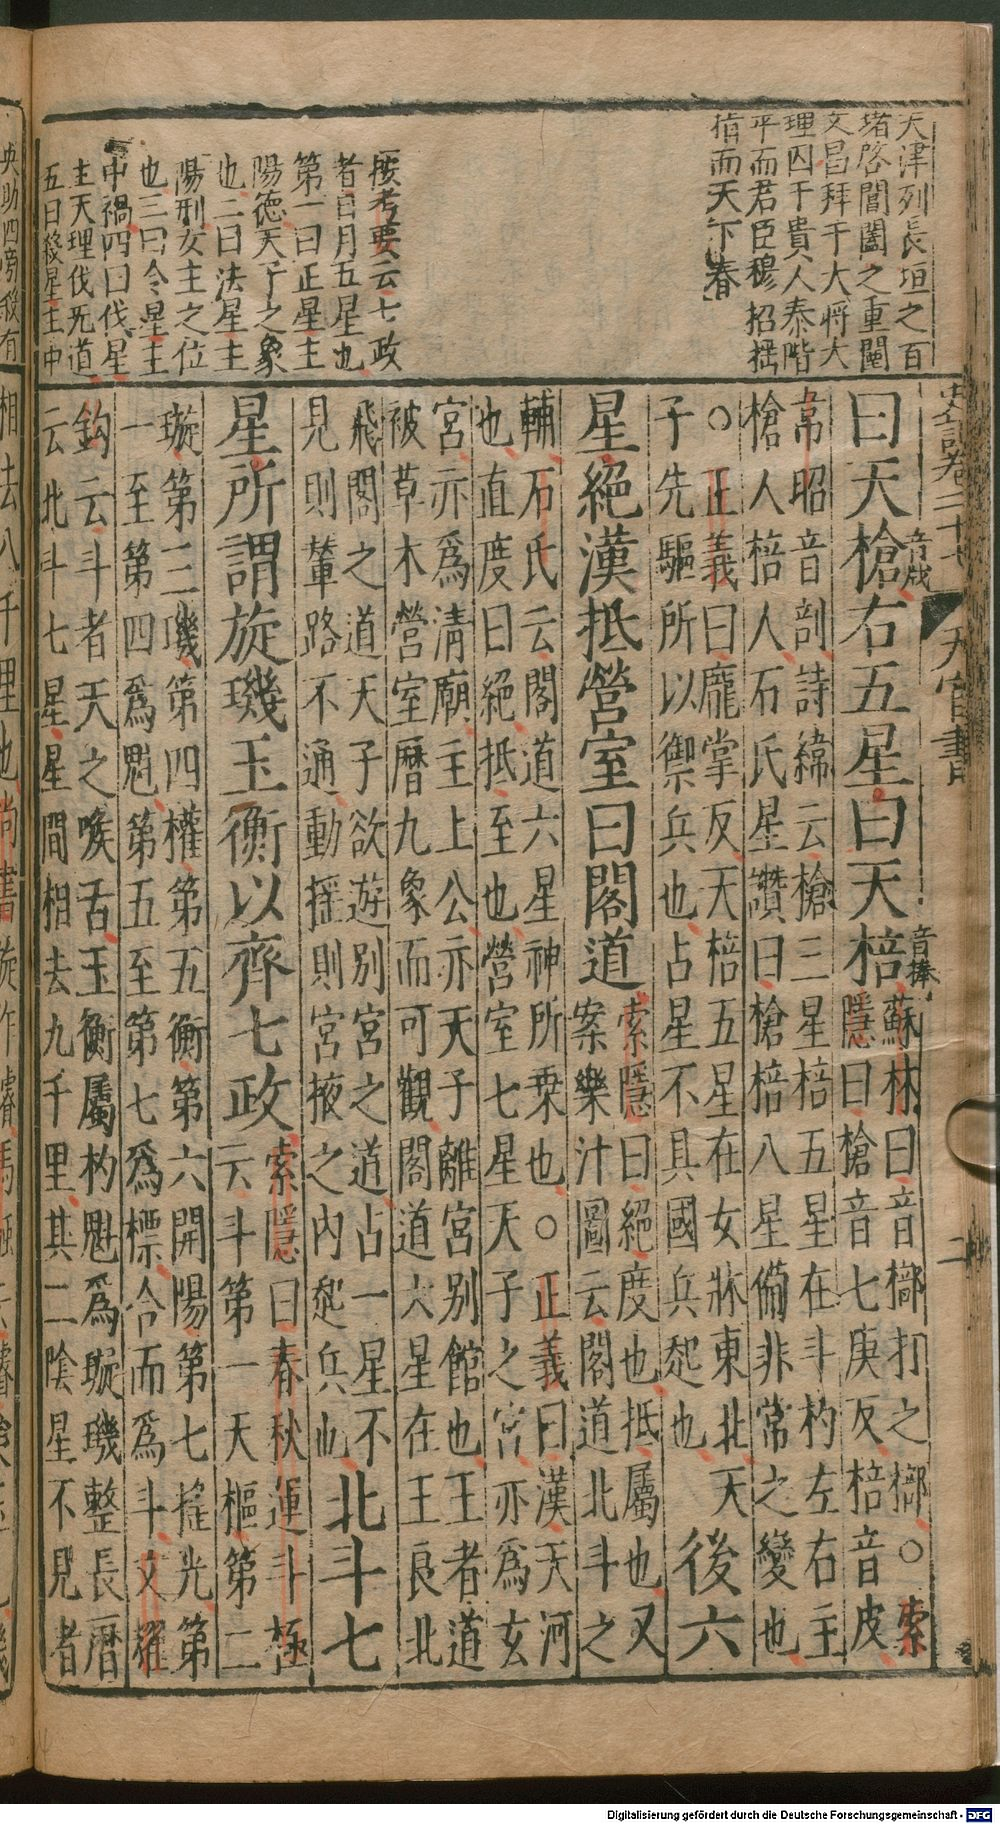 天津列長垣之百
堵啓閶闔之重闈
文昌拜于大將大
理囚于貴人泰階
平而君臣穆招揺
指而天下春
按考要云七政
者日月五星也
第一曰正星主
陽德天子之象
也二曰法星主
陽刑女主之位
也三曰令星主
中禍四曰伐星
主天理伐无道
五曰殺星主中
史記卷二十七
天官書
二
音成
音捧
曰天槍右五星曰天棓
蘇林曰音榔打之榔〇索
隱曰槍音七庚反棓音皮
韋昭音剖詩緯云槍三星棓五星在斗杓左右主
槍人棓人石氏星讚曰槍棓八星備非常之變也
〇正義曰龐掌反天棓五星在女牀東北天
子先驅所以禦兵也占星不具國兵起也
後六
星絕漢抵營室曰閣道
索隱曰絕度也抵屬也又
案樂汁圖云閣道北斗之
輔石氏云閣道六星神所乗也〇正義曰漢天河
也直度曰絕抵至也營室七星天子之宮亦爲玄
宮亦爲清廟主上公亦天子離宮别館也王者道
被草木營室曆九象而可觀閣道六星在王良北
飛閣之道天子欲遊别宮之道占一星不
見則輦路不通動揺則宮掖之内起兵也
北斗七
星所謂旋璣玉衡以齊七政
索隱曰春秋運斗極
云斗第一天樞第二
璇第三璣第四權第五衡第六開陽第七揺光第
一至第四爲魁第五至第七爲標合而爲斗文耀
鈎云斗者天之喉舌玉衡屬杓魁爲璇璣整長曆
云北斗七星星間相去九千里其二陰星不見者
相去八千里也尚書旋作璿馬融云璿
央助四旁殺有
Digitalisierung gefördert durch die Deutsche Forschungsgemeinschaft - DFG